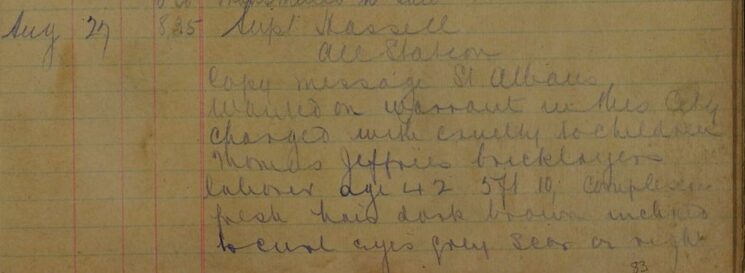 Aug 27 8,25 Supt Hassell
All Station
Copy message St Albans
Wanted on warrant in this City
charged with cruelty to children
Thomas Jeffries bricklayers
laborer age 42 5ft 10, complexion
fresh hair dark brown inclined
to curl eyes grey scar on right
83